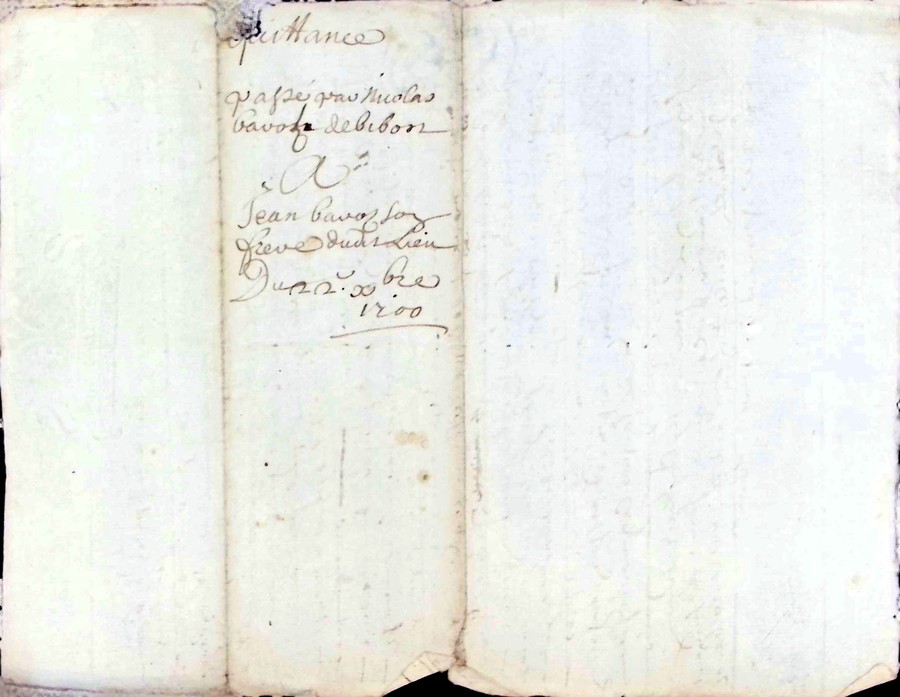 quittance
passé par Nicolas
bavoz de bibost
A
Jean bavoz son
frere dudit Lieu
Du 22e xbre
1700